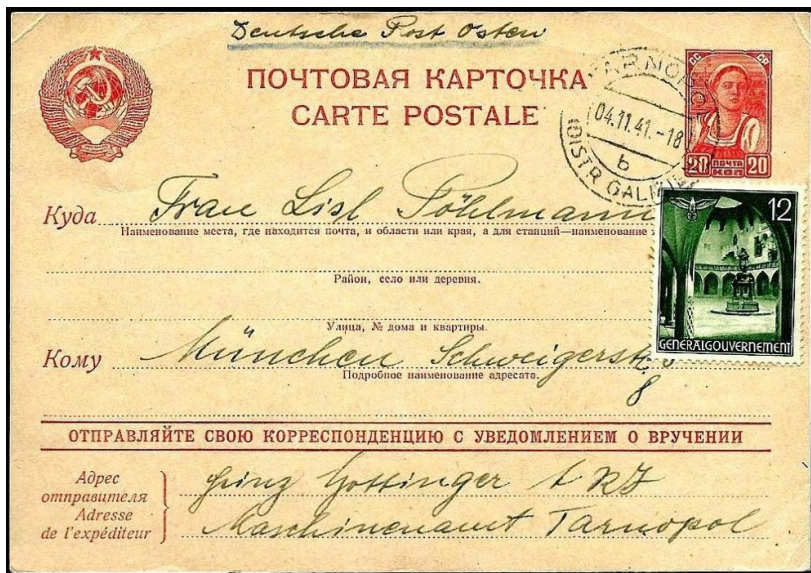 Deutsche Post Osten
ПОЧТОВАЯ КАРТОЧКА
CARTE POSTALE
СС СР
TARNOPOL
04.11.41.-18
b
(DISTR GALIZIEN)
20 ПОЧТА КОП 20
12
GENERALGOUVERNEMENT
Куда Frau Lisl Pöhlmann
Наименование места, где находится почта, и области или края, а для станций—наименование
Район, село или деревня.
Улица, № дома и квартиры.
Кому München Schweigerstr.
8
Подробное наименование адресата.
ОТПРАВЛЯЙТЕ СВОЮ КОРРЕСПОНДЕНЦИЮ С УВЕДОМЛЕНИЕМ О ВРУЧЕНИИ
Адрес
отправителя
Adresse
de l'expéditeur
Gottinger
Maschinenamt Tarnopol